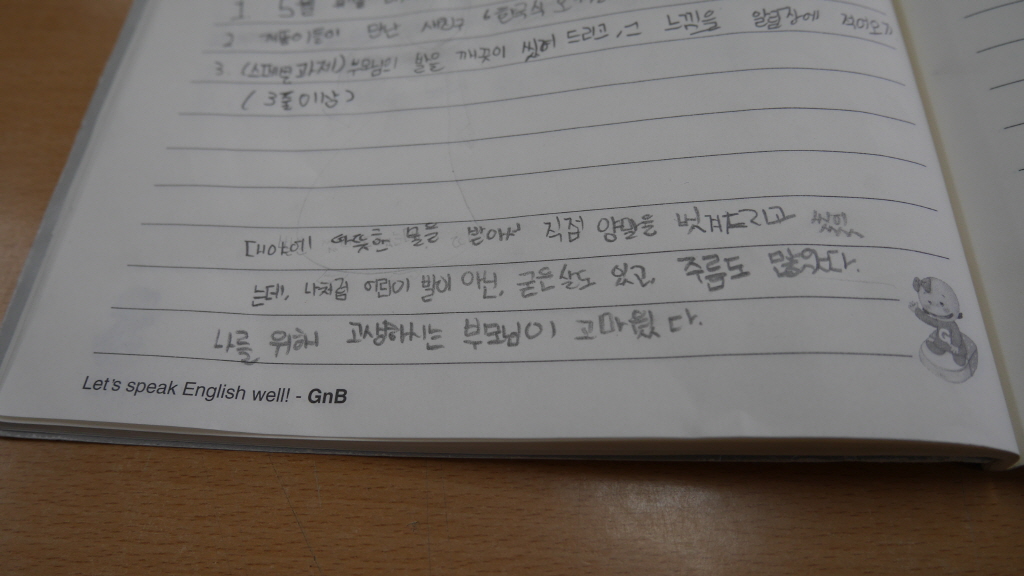 1 5월
2
3. (스페셜과제) 부모님의 발을 깨끗이 씻어 드리고, 그 느낀을 알림장에 적어오기
(3줄이상)
대야에 따뜻한 물을 받아서 직접 양말을 벗겨드리고 씻었
는데, 나처럼 어린이 발이 아닌, 굳은살도 있고, 주름도 많았다.
나를 위해 고생하시는 부모님이 고마웠다.
Let's speak English well! - GnB